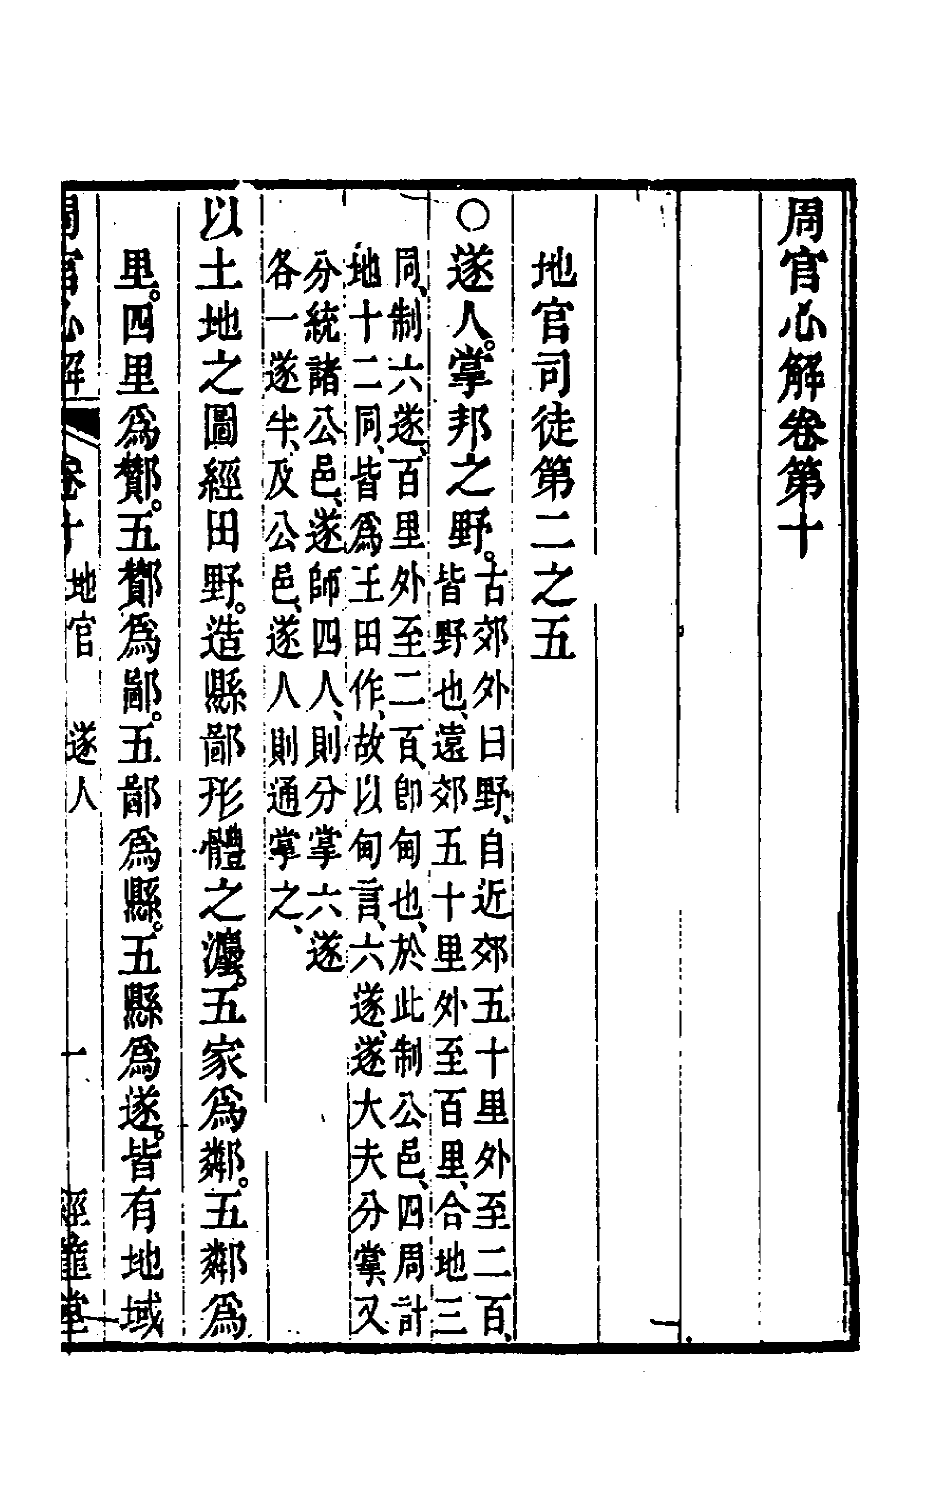 周官心解卷第十
地官司徒第二之五
○遂人。掌邦之野。古郊外曰野、自近郊五十里外至二百、
皆野也、遠郊五十里外至百里、合地三
同、制六遂、百里外至二百、即甸也、於此制公邑、四周計
地十二同、皆爲王田作、故以甸言、六遂、遂大夫分掌、又
分統諸公邑、遂師四人、則分掌六遂
各一遂半、及公邑、遂人則通掌之、
以土地之圖經田野。造縣鄙形體之灋。五家爲鄰。五鄰爲
里。四里爲酇。五酇爲鄙。五鄙爲縣。五縣爲遂。皆有地域
周官心解 卷十 地官 遂人 一